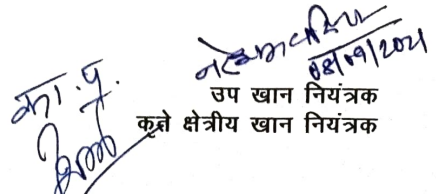 08/09/2021
का. प्र.
उप खान नियंत्रक
कृते क्षेत्रीय खान नियंत्रक